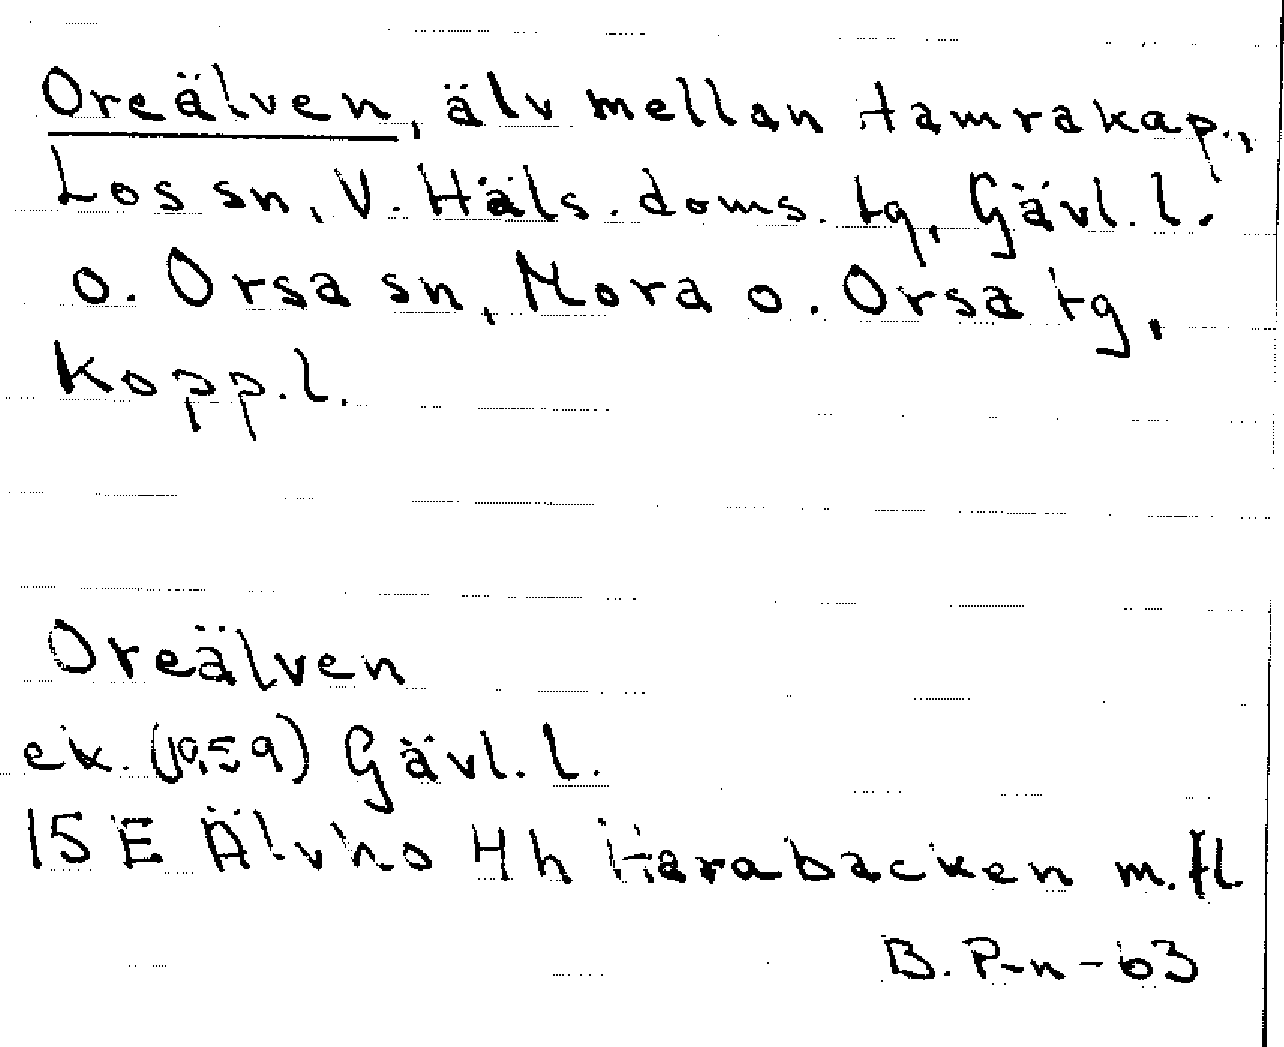 Oreälven, älv mellan Hamrakap.,
Los sn, V. Häls. doms. tg, Gävl. l.
o. Orsa sn, Mora o. Orsa tg,
Kopp. l.
Oreälven
ek. (1959) Gävl. l.
15 E Älvho 4 h Harabacken m. fl
B. P-n-63